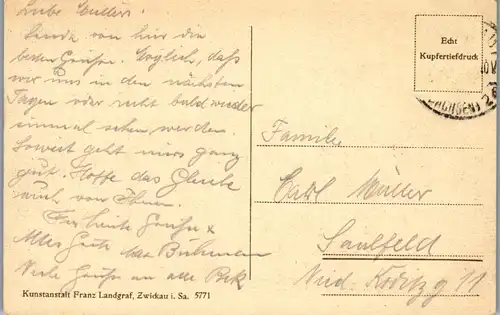 Liebe
Sende von hier die
besten Grüße. Möglich, daß
wir uns in den nächsten
Tagen oder recht bald wieder
einmal sehen werden.
Soweit geht mirs ganz
gut. Hoffe das Gleiche
auch von Ihnen.
Für heute Grüße &
Alles Gute
Viele Grüße an alle
Kunstanstalt Franz Landgraf, Zwickau i. Sa. 5771
Echt
Kupfertiefdruck
(SACHSEN)
Familie
Carl Müller
Saalfeld
Nied. Köditzg 11